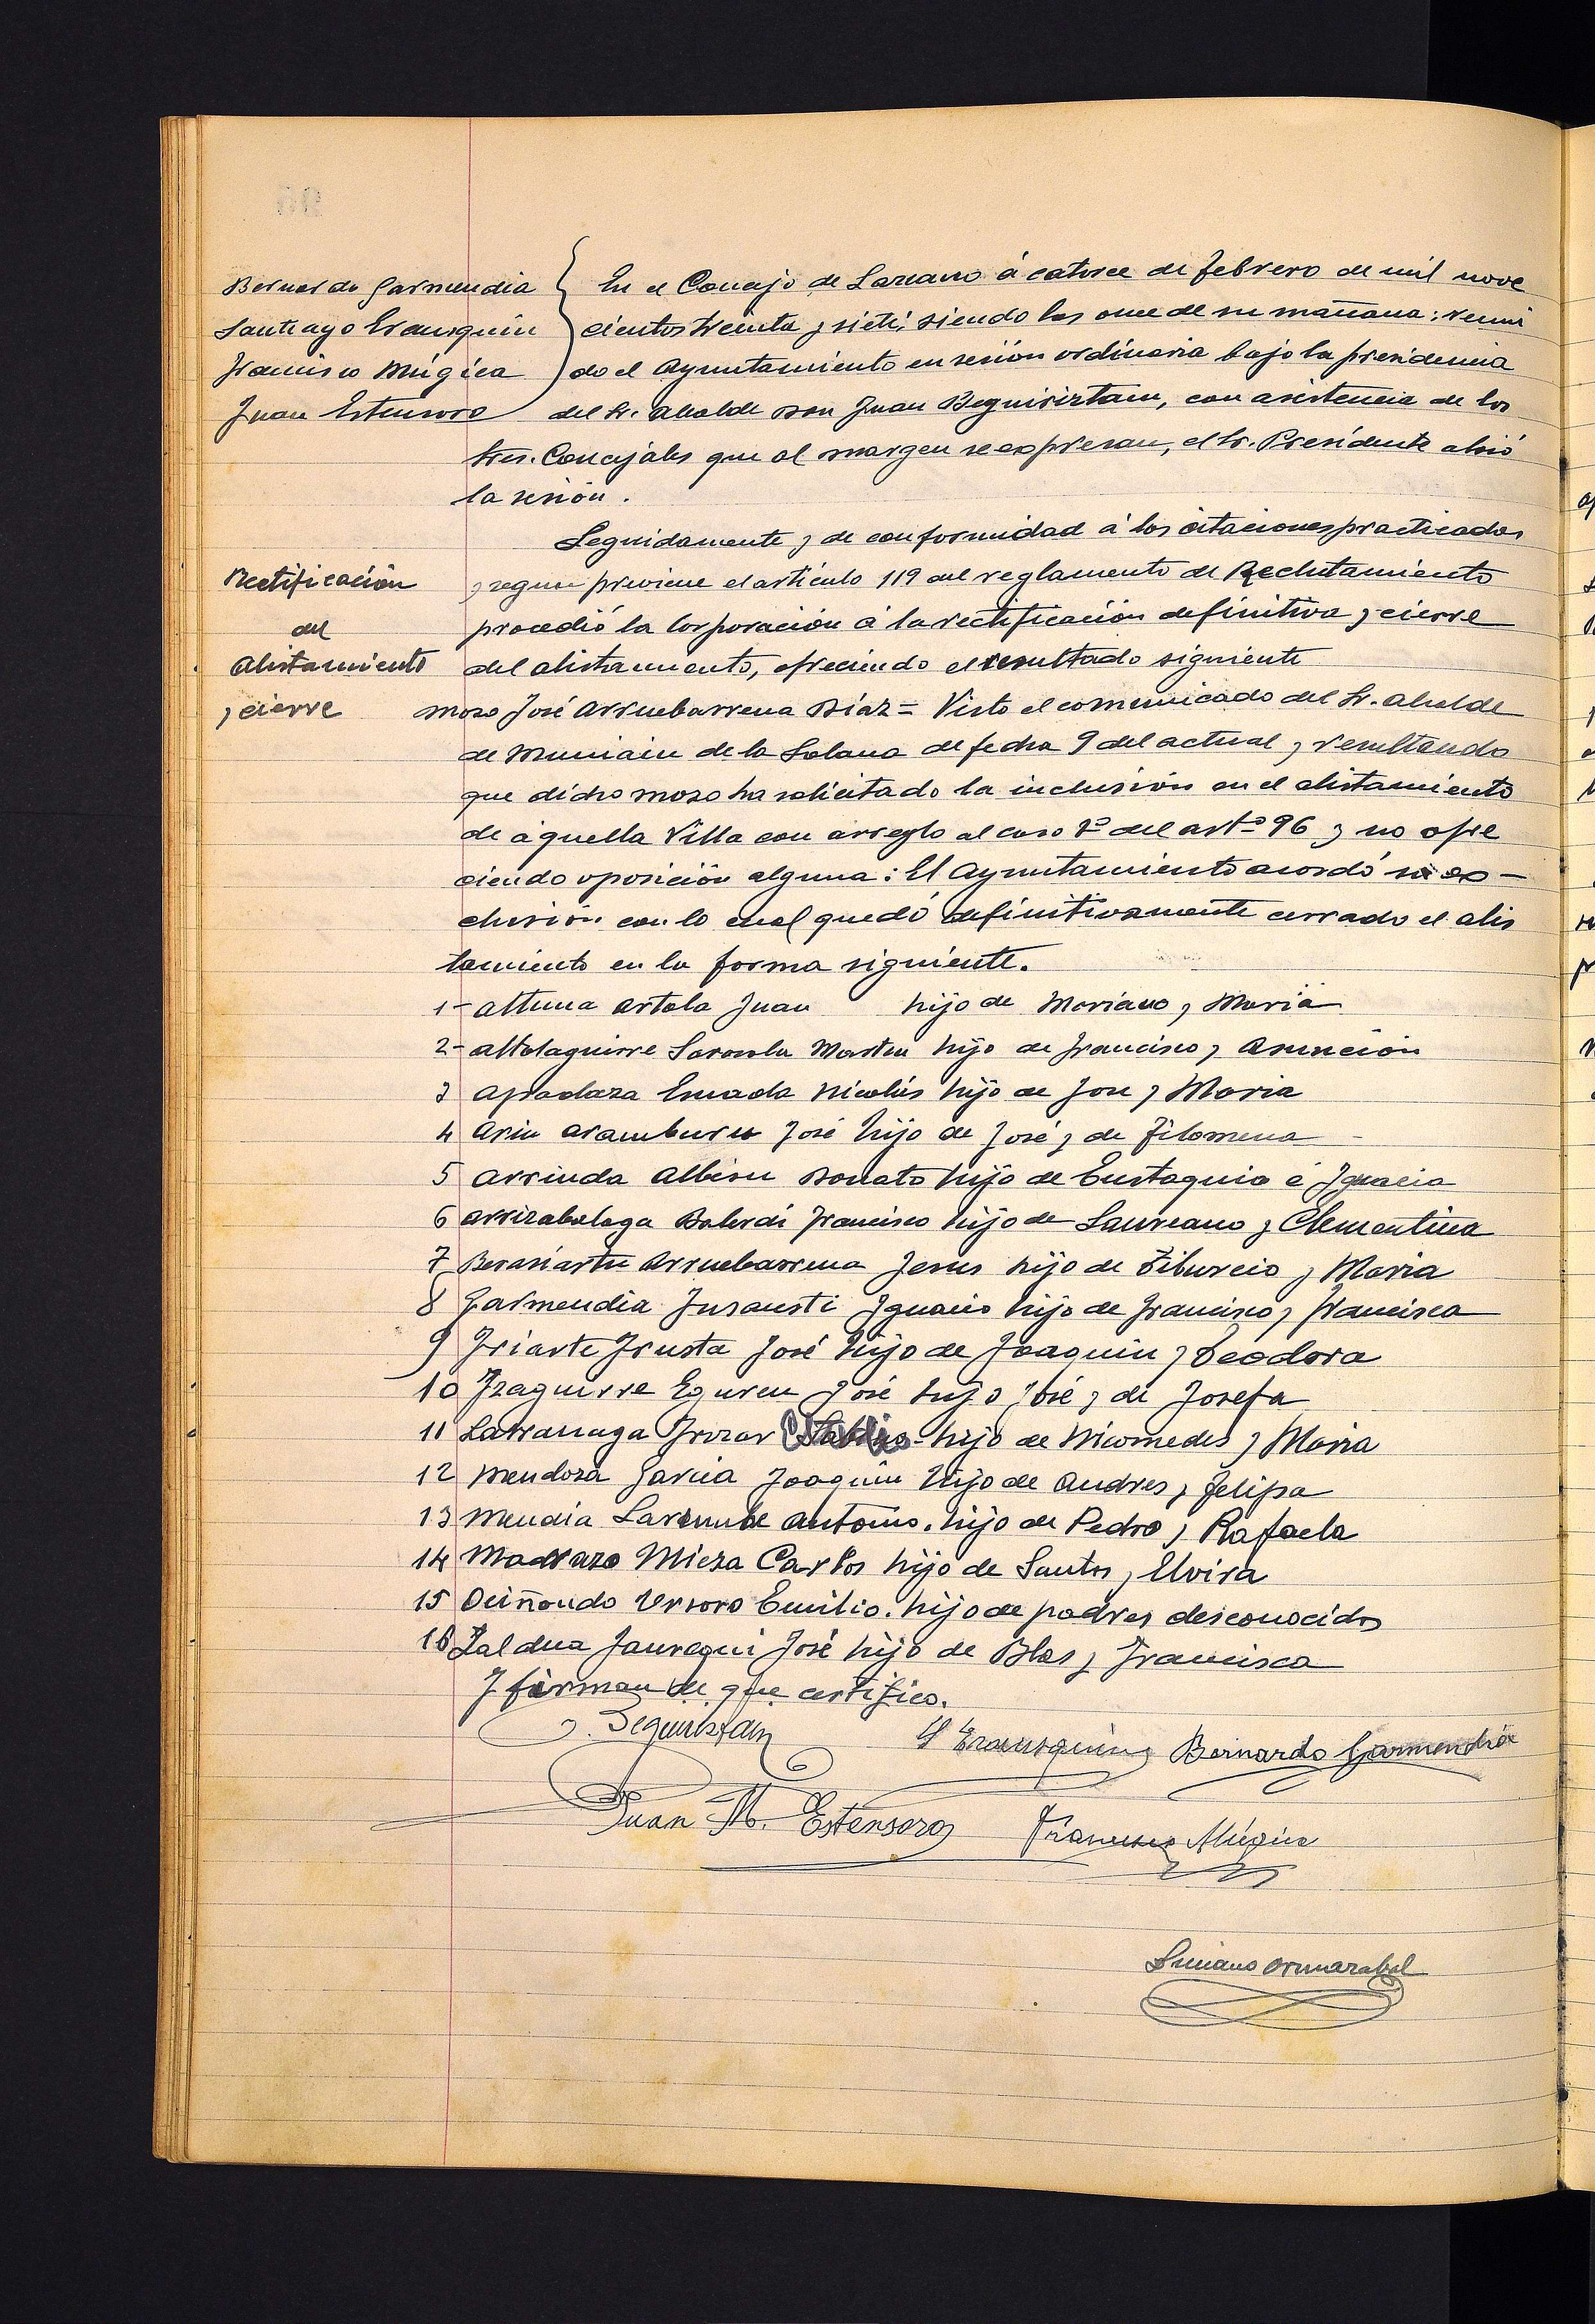 Bernardo Garmendia
Santiago Erausquin
Francisco Múgica
Juan Estensoro
En el Concejo de Lazcano á catorce de febrero de mil nove
cientos treinta y siete; siendo las once de su mañana: reuni
do el Ayuntamiento en sesión ordinaria bajo la presidencia
del Sr. Alcalde Don Juan Beguiristain, con asistencia de los
Sres. Concejales que al margen se expresan, el Sr. Presidente abrió
la sesión.
Rectificación
del
Alistamiento
y cierre
Seguidamente y de conformidad á las citaciones practicadas
y segun previene el artículo 119 del reglamento de Reclutamiento
procedió la Corporación á la rectificación definitiva y cierre
del alistamiento, ofreciendo el resultado siguiente
Mozo José Arruebarrena Díaz = Visto el comunicado del Sr. Alcalde
de Muniain de la Solana de fecha 9 del actual y resultando
que dicho mozo ha solicitado la inclusión en el alistamiento
de aquella Villa con arreglo al caso del artº 96 y no ofre
ciendo oposición alguna: El Ayuntamiento acordó su ex-
clusión con lo cual quedó definitivamente cerrado el alis
tamiento en la forma siguiente.
1- Altuna Artola Juan hijo de Mariano y Maria
2- Altolaguirre Sarasola Martin hijo de Francisco y Asunción
3 Apaolaza Nicolás hijo de Jose y Maria
4 Arin Aramburu José hijo de José y de Filomena
5 Arrinda Albisu Donato hijo de Eustaquio é Ignacia
6 Arrizabalaga Balerdi Francisco hijo de Laureano y Clementina
7 Berasiartu Arruebarrena Jesus hijo de Tiburcio y Maria
8 Garmendia Insausti Ignacio hijo de Francisco y Francisca
9 Iriarte Irusta José hijo de Joaquin y Teodora
10 Izaguirre Eguren José hijo José y de Josefa
11 Larrañaga Irizar hijo de Nicomedes y Maria
12 Mendoza Garcia Joaquin hijo de Andres y Felipa
13 Mendia Antonio. hijo de Pedro y Rafaela
14 Madrazo Mieza Carlos hijo de Santos y Elvira
15 Emilio. hijo de padres desconocidos
16 Zaldua Jauregui José hijo de Blas y Francisca
Y firman de que certifico.
J. Beguiristain
S Erausquin
Bernardo Garmendia
Juan M. Estensoro
Francisco Múgica
Luciano Ormazabal